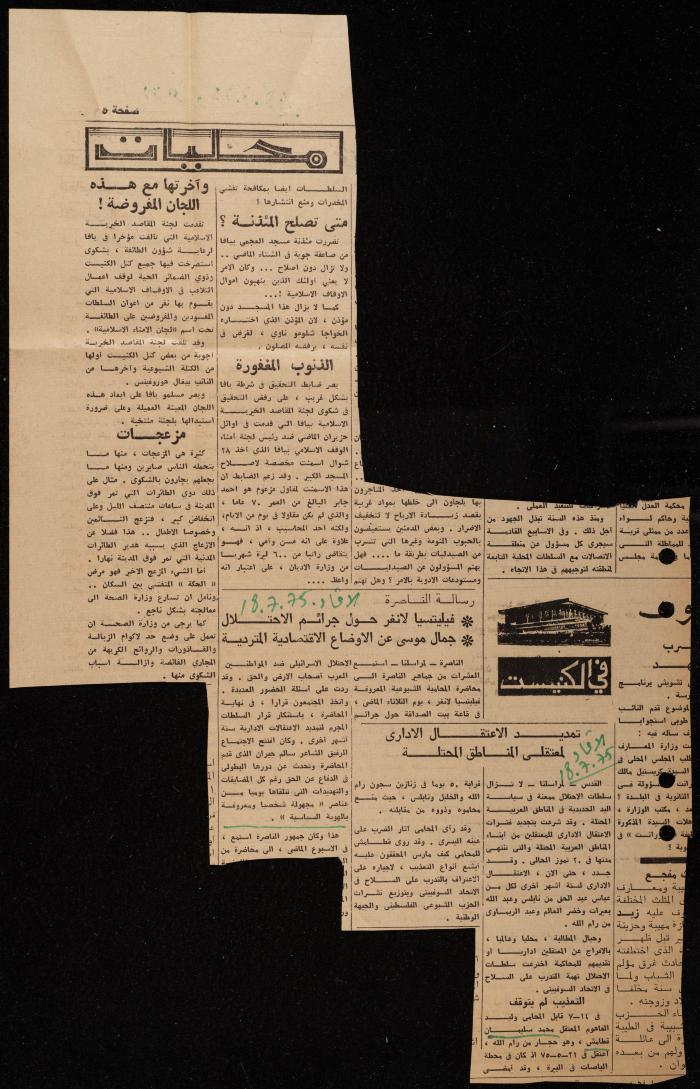 صفحة ٥
محليات
السلطات ايضا بمكافحة تفشي
المخدرات ومنع انتشارها !
متى تصلح المئذنة ؟
تضررت مئذنة مسجد العجمي بيافا
من صاعقة جوية في الشتاء الماضي ..
ولا تزال دون اصلاح ... وكان الامر
لا يعني اولئك الذين ينهبون اموال
الاوقاف الاسلامية !...
كما لا يزال هذا المسجد دون
مؤذن ، لان المؤذن الذي اختاره
الخواجا شلومو ناوي ، لغرض في
نفسه ، يرفضه المصلون .
الذنوب المغفورة
يصر ضابط التحقيق في شرطة يافا
بشكل غريب ، على رفض التحقيق
في شكوى لجنة المقاصد الخيرية
الاسلامية بيافا التي قدمت في اوائل
حزيران الماضي ضد رئيس لجنة امناء
الوقف الاسلامي بيافا الذي اخذ ٢٨
شوال اسمنت مخصصة لاصلاح
المسجد الكبير . وقد زعم الضابط ان
هذا الاسمنت لمقاول مزعوم هو احمد
جابر البالغ من العمر ٧٠ عاما ،
والذي لم يكن مقاولا في يوم من الايام،
ولكنه احد المحاسيب ، اذ انه ،
علاوة على انه مسن وامي ، فهو
يتقاضى راتبا من ٦٠٠ ليرة شهريا
من وزارة الاديان ، على اعتبار انه
واعظ ....
وآخرتها مع هذه
اللجان المفروضة !
تقدمت لجنة المقاصد الخيرية
الاسلامية التي تالفت مؤخرا في يافا
لرعاية شؤون الطائفة ، بشكوى
استصرخت فيها جميع كتل الكنيست
وذوي الضمائر الحية لوقف اعمال
التلاعب في الاوقاف الاسلامية التي
يقوم بها نفر من اعوان السلطات
المفسودين والمفروضين على الطائفة
تحت اسم «لجان الامناء الاسلامية» .
وقد تلقت لجنة المقاصد الخيرية
اجوبة من بعض كتل الكنيست اولها
من الكتلة الشيوعية وآخرها من
النائب يغال هوروفيتس .
ويصر مسلمو يافا على ابعاد هذه
اللجان المعينة العميلة وعلى ضرورة
استبدالها بلجنة منتخبة .
مزعجات
كثيرة هي المزعجات ، منها ما
يتحمله الناس صابرين ومنها ما
يجعلهم يجارون بالشكوى . مثال على
ذلك دوي الطائرات التي تمر فوق
المدينة في ساعات منتصف الليل وعلى
انخفاض كبير ، فتزعج النائمين
وخصوصا الاطفال .. هذا فضلا عن
الازعاج الذي يسببه هدير الطائرات
المدنية التي تمر فوق المدينة نهارا .
اما الشيء المزعج الاخير فهو مرض
« الحكة » المتفشي بين السكان ..
ونامل ان تسارع وزارة الصحة الى
معالجته بشكل ناجع .
كما يرجى من وزارة الصحة ان
تعمل على وضع حد لاكوام الزبالة
والقاذورات والروائح الكريهة من
المجاري الفائضة وازالة اسباب
الشكوى منها .
المتاجرون
بها يلجاون الى خلطها بمواد غريبة
بقصد زيادة الارباح لا لتخفيف
الاضرار . وبعض المدمنين يستعيضون
بالحبوب المنومة وغيرها التي تتسرب
من الصيدليات بطريقة ما .... فهل
يهتم المسؤولون عن الصيدليات
ومستودعات الادوية بالامر ؟ وهل تهتم
للتنفيذ العملي .
ومنذ هذه السنة تبذل الجهود من
اجل ذلك . وفي الاسابيع القادمة
سيجري كل مسؤول عن منطقة
الاتصالات مع السلطات المحلية التابعة
لمنطقته لتوجيههم في هذا الاتجاه .
في الكنيست
رسالة الناصرة
18.7.75
فيليتسيا لانغر حول جرائم الاحتلال
جمال موسى عن الاوضاع الاقتصادية المتردية
الناصرة – لمراسلنا – استمع
العشرات من جماهير الناصرة الى
محاضرة المحامية الشيوعية المعروفة
فيليتسيا لانغر ، يوم الثلاثاء الماضي ،
في قاعة بيت الصداقة حول جرائم
الاحتلال الاسرائيلي ضد المواطنين
العرب اصحاب الارض والحق . وقد
ردت على اسئلة الحضور العديدة .
واتخذ المجتمعون قرارا ، في نهاية
المحاضرة ، باستنكار قرار السلطات
المجرم لتمديد الاعتقالات الادارية ستة
اشهر اخرى . وكان افتتح الاجتماع
الرفيق الشاعر سالم جبران الذي قدم
المحاضرة وتحدث عن دورها البطولي
في الدفاع عن الحق رغم كل المضايقات
والتهديدات التي تتلقاها يوميا من
عناصر « مجهولة شخصيا ومعروفة
بالهوية السياسية » .
هذا وكان جمهور الناصرة استمع ،
في الاسبوع الماضي ، الى محاضرة من
تمديد الاعتقال الادارى
لمعتقلي المناطق المحتلة
18.7.75
القدس – لمراسلنا – لا تزال
سلطات الاحتلال ممعنة في سياسة
اليد الحديدية في المناطق العربية
المحتلة . وقد شرعت بتجديد فترات
الاعتقال الادارى للمعتقلين من ابناء
المناطق العربية المحتلة والتي تنتهي
مدتها في ٢٠ تموز الحالي . وقد
جدد ، حتى الان ، الاعتقال
الادارى لستة اشهر اخرى لكل من
عباس عبد الحق من نابلس وعبد الله
بميرات وخضر العالم وعبد الريماوى
من رام الله .
وحيال المطالبة ، محليا وعالميا ،
بالافراج عن المعتقلين اداريا او
تقديمهم للمحاكمة اخترعت سلطات
الاحتلال تهمة التدرب على السلاح
في الاتحاد السوفييتي .
التعذيب لم يتوقف
في ١٤–٧ قابل المحامي وليد
الفاهوم المعتقل محمد سليمان
نظامش ، وهو حجار من رام الله ،
اعتقل في ٢١–٥–٧٥ اذ كان في محطة
الباصات في البيرة ، وقد امضى
قرابة ٥٠ يوما في زنازين سجون رام
الله والخليل ونابلس ، حيث منع
محاموه وذووه من مقابلته .
وقد رأى المحامي آثار الضرب على
عينه اليسرى . وقد روى نطامش
للمحامي كيف مارس المحققون عليه
ابشع انواع التعذيب ، لاجباره على
الاعتراف بالتدرب على السلاح في
الاتحاد السوفييتي وبتوزيع نشرات
الحزب الشيوعي الفلسطيني والجبهة
الوطنية .